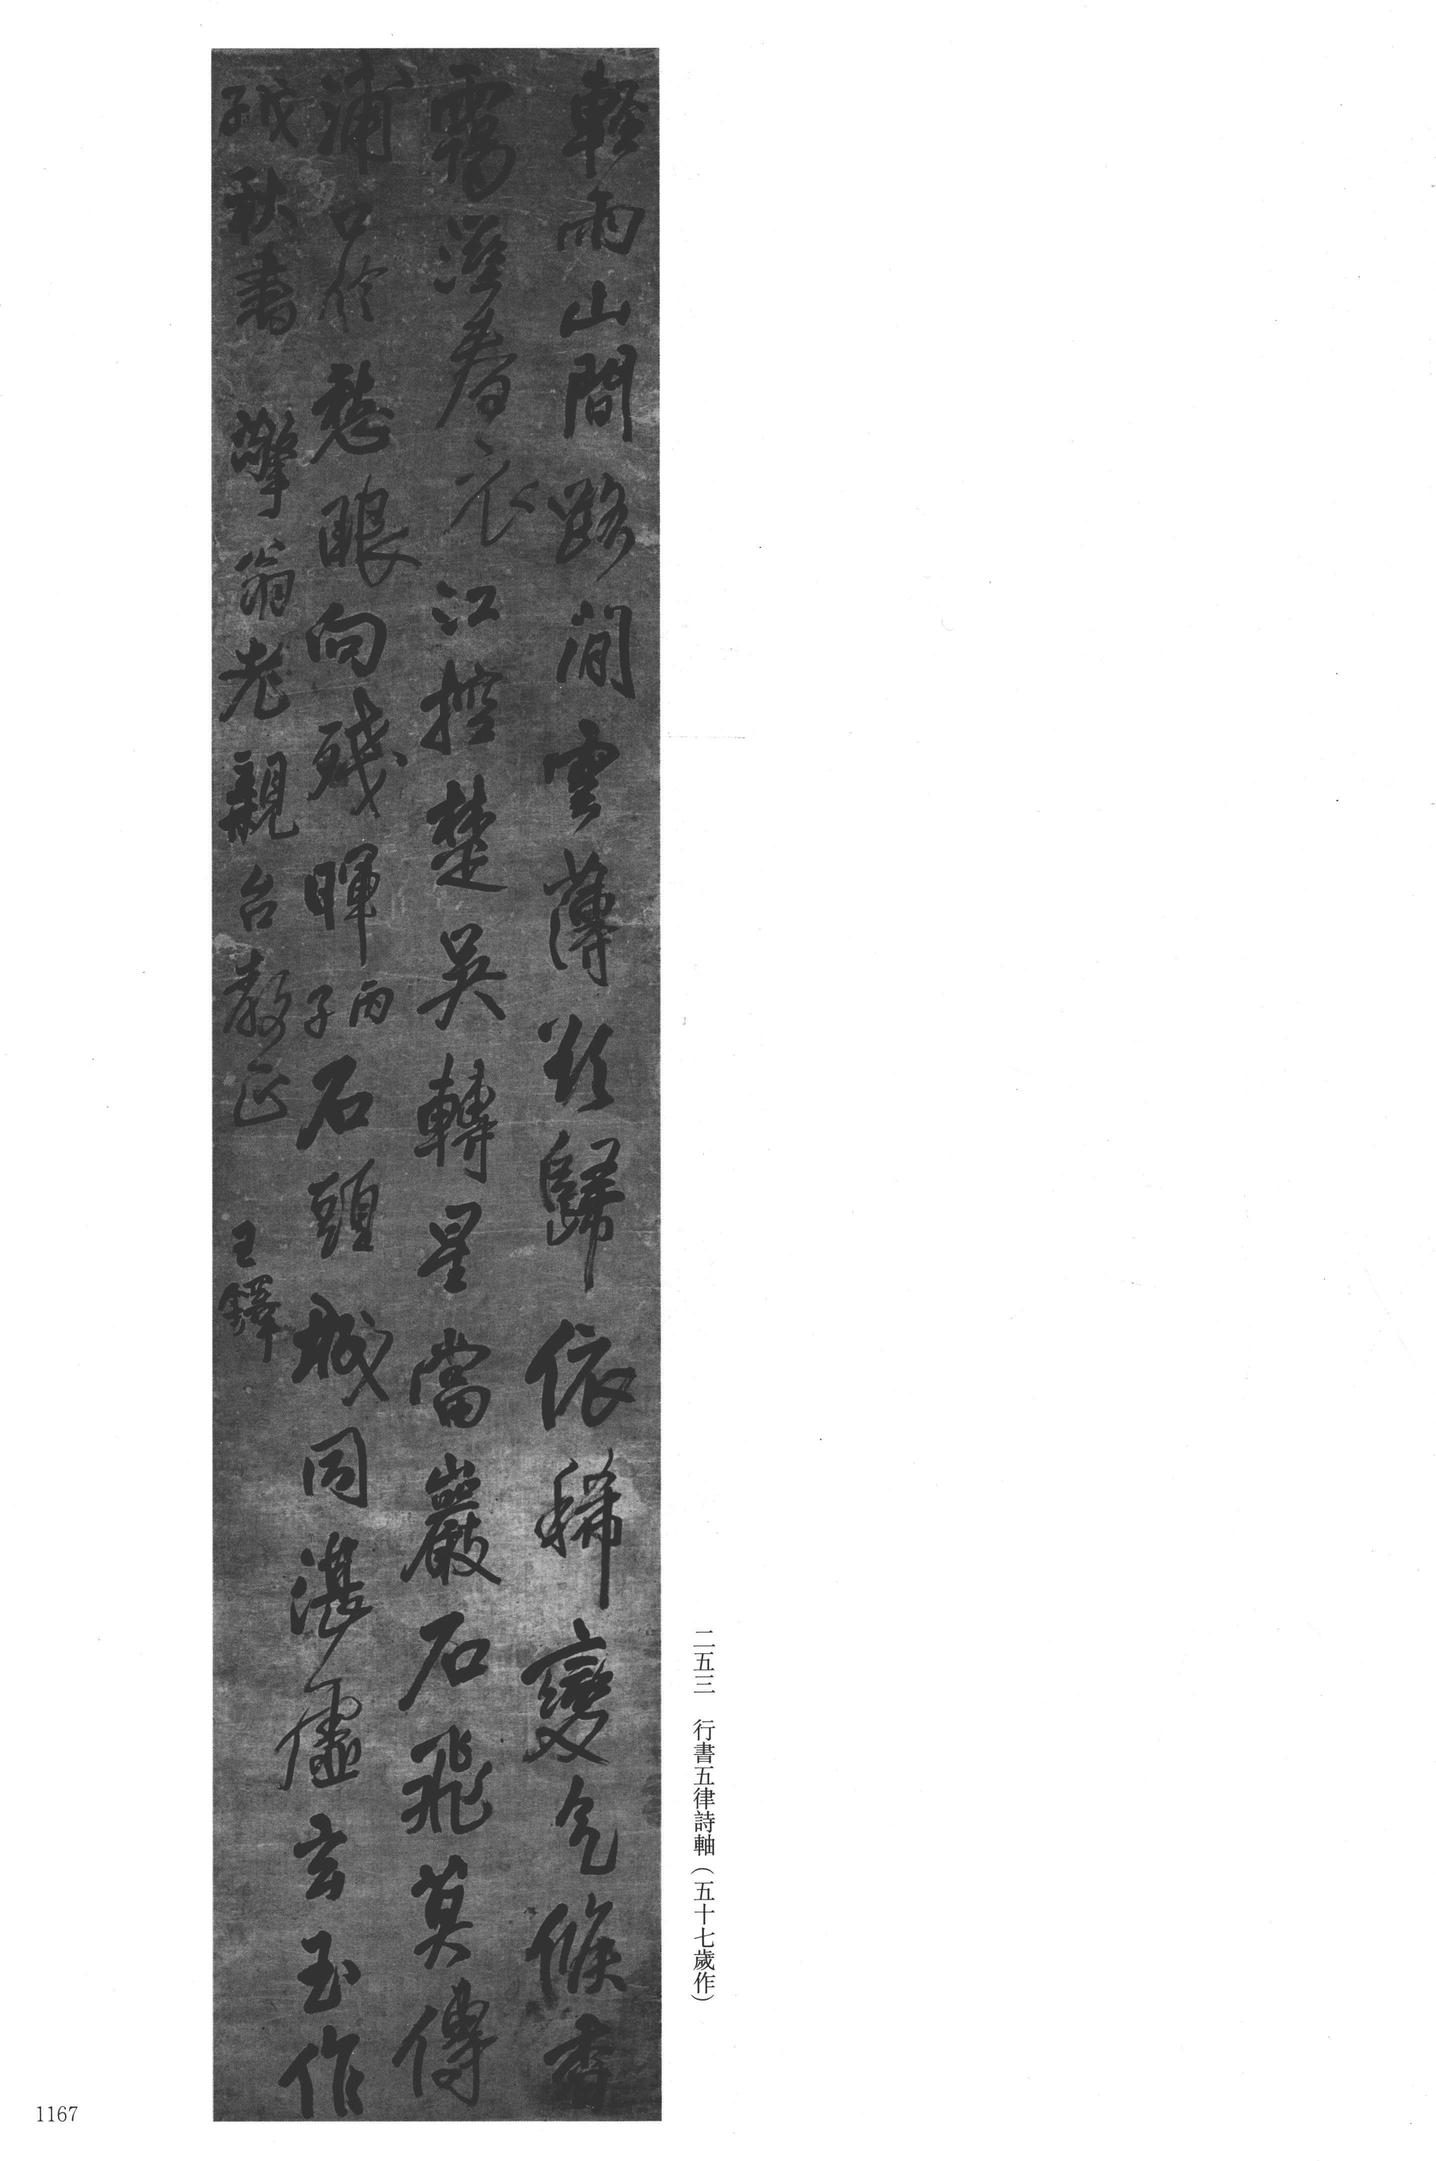 輕雨山間路閒雲薄欲歸依稀變氣候杳
靄溼春衣江控楚吳轉星當巖石飛莫傳
浦口信愁眼向殘暉丙子石頭城同湛虛玄玉作
戊子秋書 擎翁老親台教正 王鐸
二五三 行書五律詩軸(五十七歲作)
1167